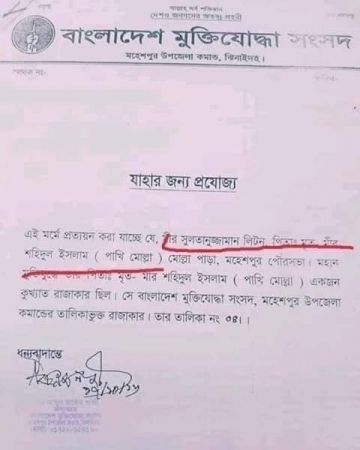 আল্লাহ সর্ব শক্তিমান
দেশের জনগণের অতন্দ্র প্রহরী
বাংলাদেশ মুক্তিযোদ্ধা সংসদ
মহেশপুর উপজেলা কমান্ড, ঝিনাইদহ।
যাহার জন্য প্রযোজ্য
এই মর্মে প্রত্যয়ন করা যাচ্ছে যে, মীর সুলতানুজ্জামান লিটন, পিতাঃ মৃত- মীর
শহিদুল ইসলাম ( পাখি মোল্লা ) মোল্লা পাড়া, মহেশপুর পৌরসভা। মহান
মুক্তিযুদ্ধে তার পিতাঃ মৃত- মীর শহিদুল ইসলাম ( পাখি মোল্লা ) একজন
কুখ্যাত রাজাকার ছিল। সে বাংলাদেশ মুক্তিযোদ্ধা সংসদ, মহেশপুর উপজেলা
কমান্ডের তালিকাভুক্ত রাজাকার। তার তালিকা নং ০৪।।
ধন্যবাদান্তে